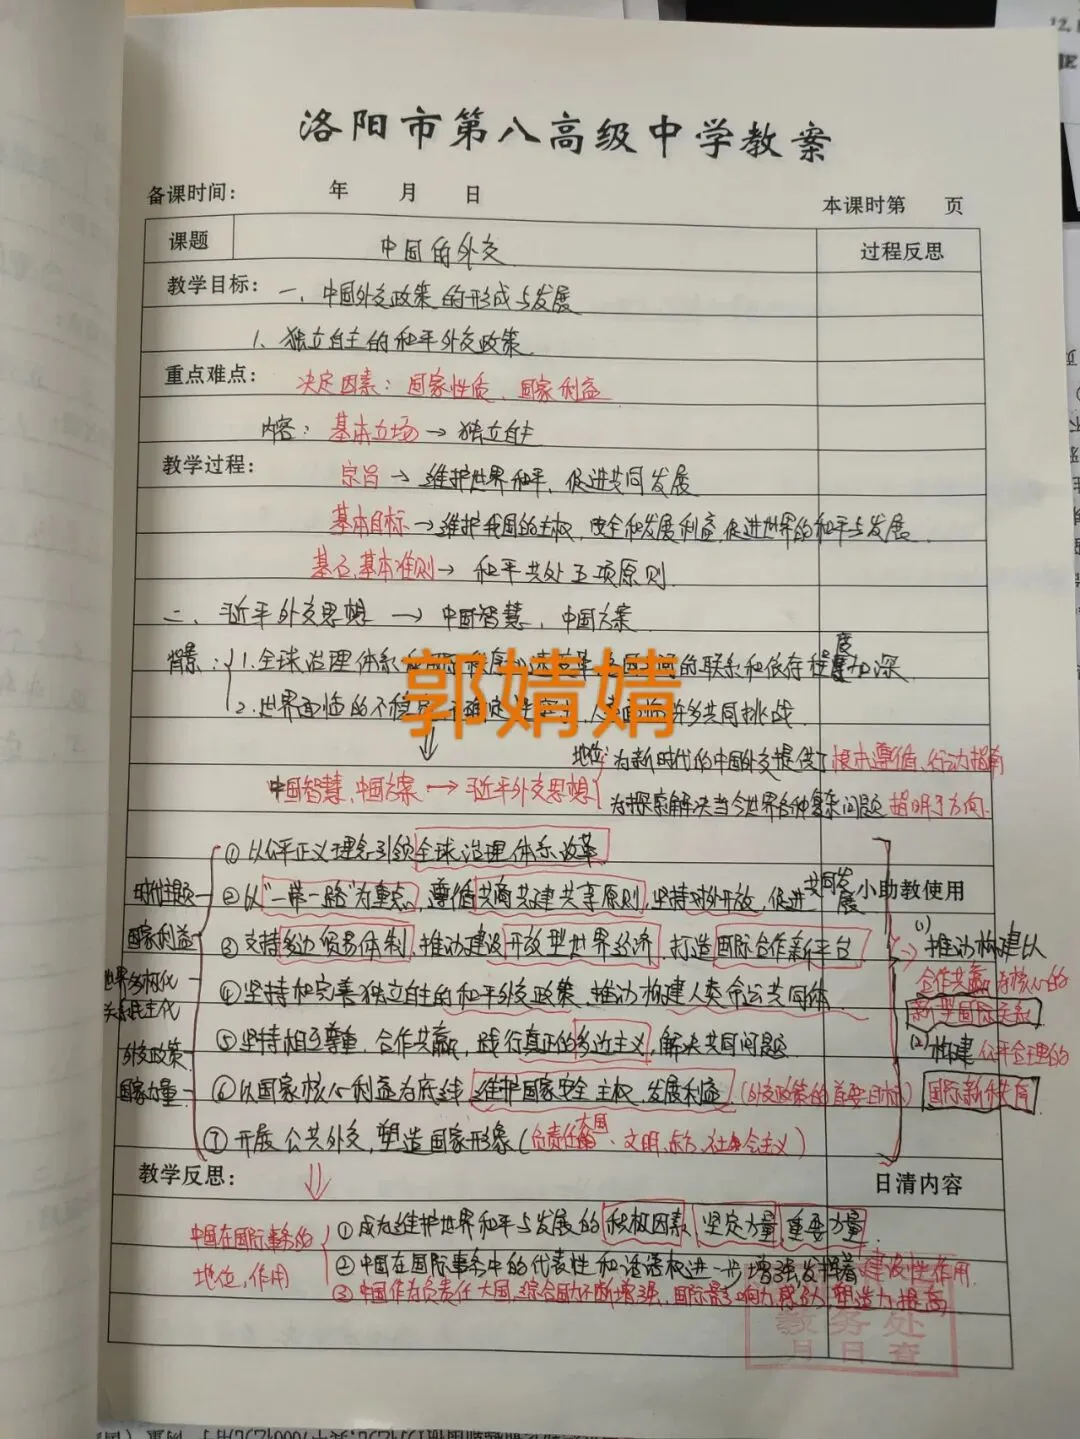 洛阳市第八高级中学教案
备课时间： 年 月 日
本课时第 页
课题 中国的外交 过程反思
教学目标： 一、中国外交政策的形成与发展
1、独立自主的和平外交政策
重点难点： 决定因素：国家性质、国家利益
内容：基本立场→独立自主
教学过程： 宗旨→维护世界和平、促进共同发展
基本目标→维护我国的主权、安全和发展利益,促进世界的和平与发展.
基石、基本准则→和平共处五项原则.
二、习近平外交思想→中国智慧、中国方案
背景：1.全球治理体系 的联系和依存程度加深.
2.世界面临的不稳定 许多共同挑战.
郭婧婧
地位：为新时代的中国外交提供了根本遵循、行动指南
中国智慧、中国方案←→习近平外交思想
为探索解决当今世界各种复杂问题指明了方向.
①以公平正义理念引领全球治理体系改革
时代主题 ②以“一带一路”为重点、遵循共商共建共享原则,坚持对外开放、促进共同发展 小助教使用
国家利益 ③支持多边贸易体制,推动建设开放型世界经济,打造国际合作新平台
(1)推动构建以合作共赢为核心的新型国际关系
世界多极化
关系民主化 ④坚持和完善独立自主的和平外交政策、推动构建人类命运共同体
外交政策 ⑤坚持相互尊重、合作共赢,践行真正的多边主义,解决共同问题.
(2)构建公平合理的国际新秩序
国家力量 ⑥以国家核心利益为底线维护国家安全、主权、发展利益.(外交政策的首要目标)
⑦开展公共外交,塑造国家形象(负责任大国、文明、东方、社会主义)
教学反思： 日清内容
中国在国际事务的地位、作用
①成为维护世界和平与发展的积极因素、坚定力量、重要力量.
②中国在国际事务中的代表性和话语权进一步增强,发挥着建设性作用.
③中国作为负责任大国,综合国力不断增强,国际影响力、感召力、塑造力提高
教务处
月日查